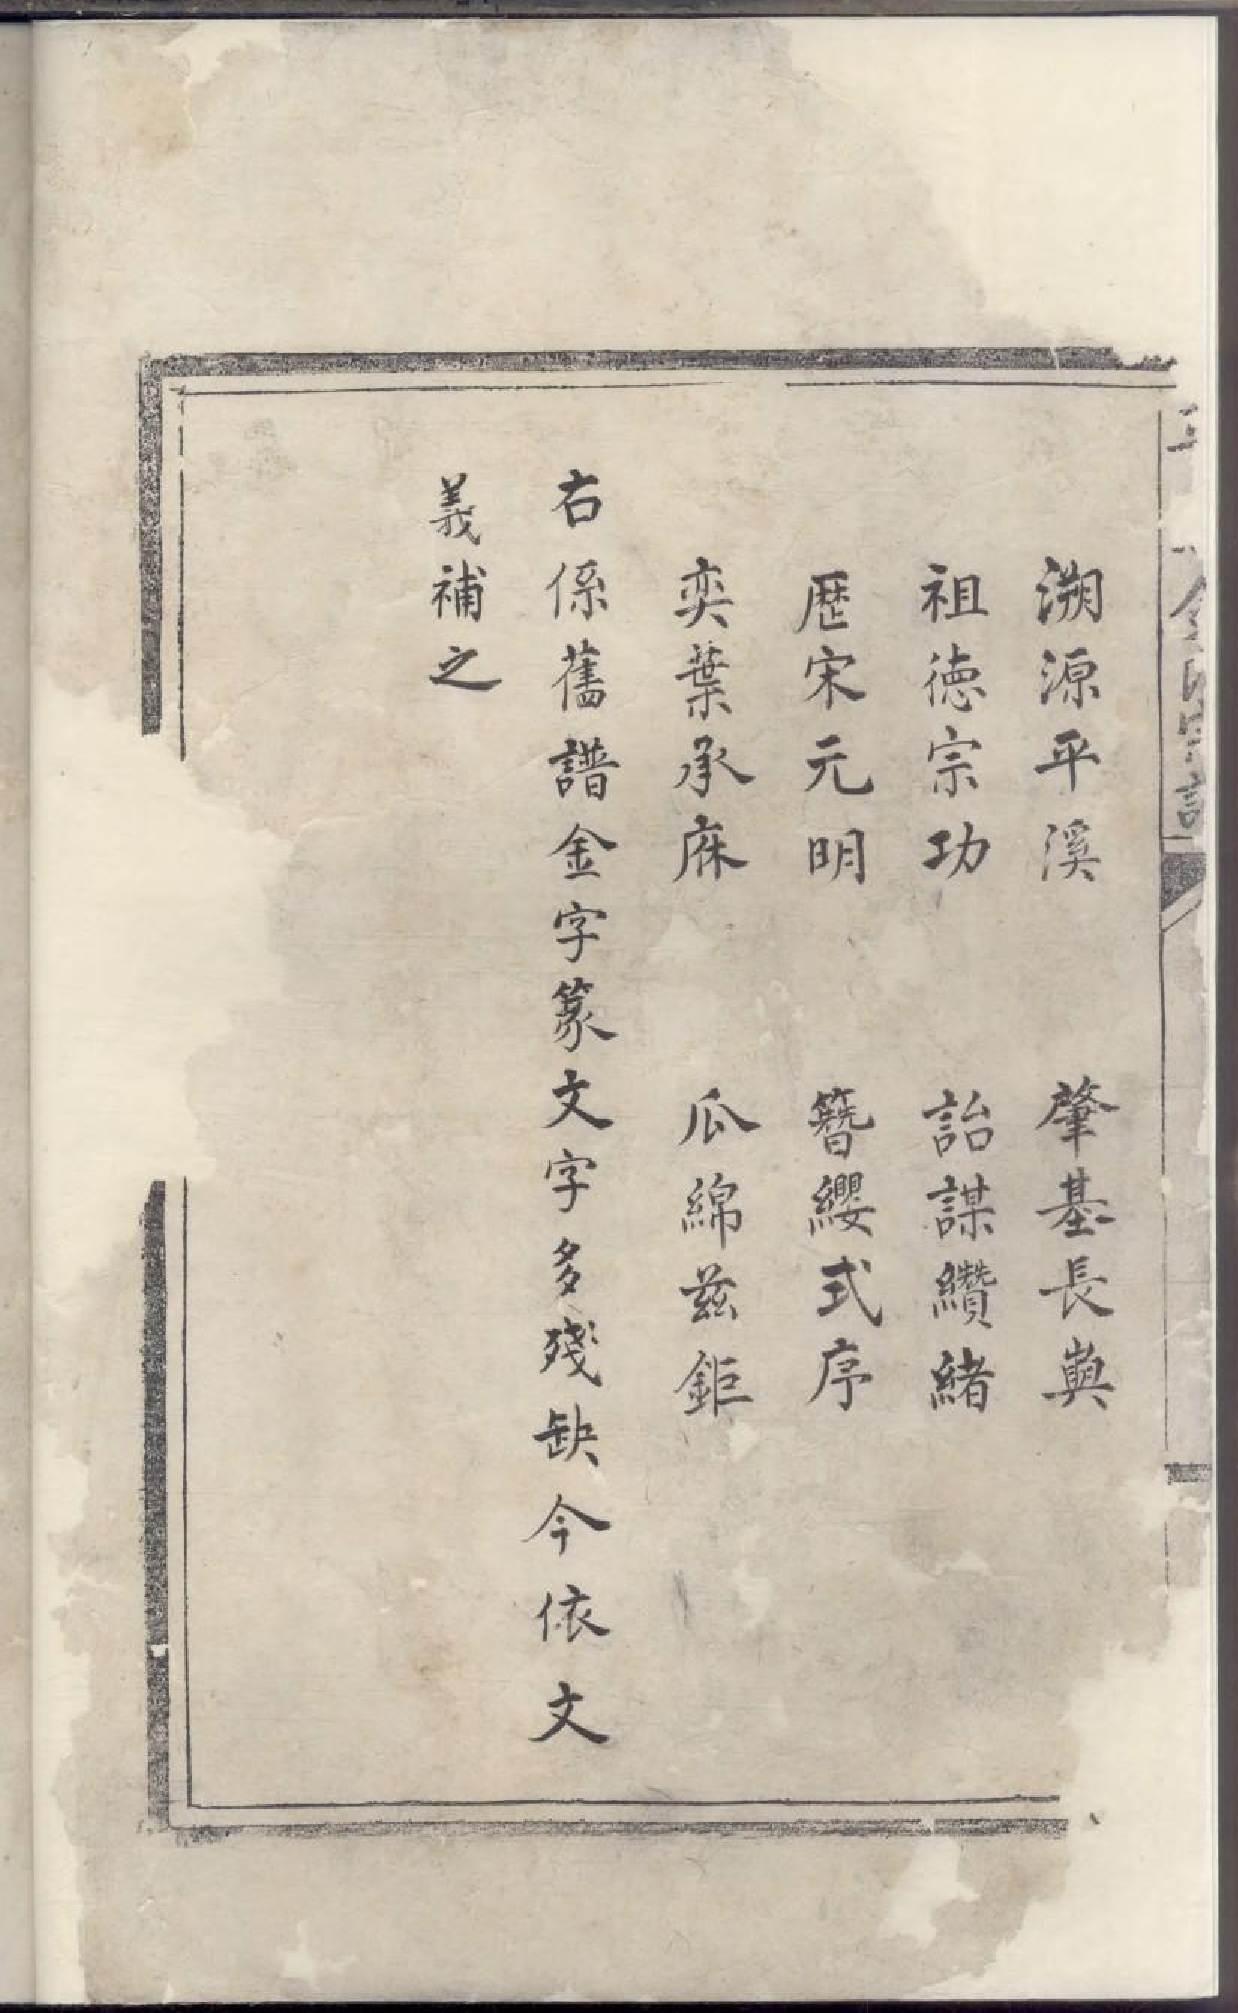 金氏宗譜
溯源平溪　肇基長㠘
祖徳宗功　詒謀纘緒
歴宋元明　簪纓式序
奕葉承庥　瓜綿兹鉅
右係舊譜金字篆文字多殘缺今依文
義補之